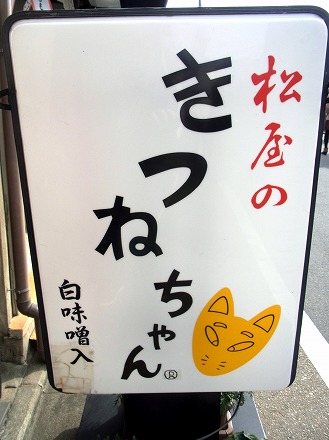 松屋の
きつねちゃん®
白味噌入